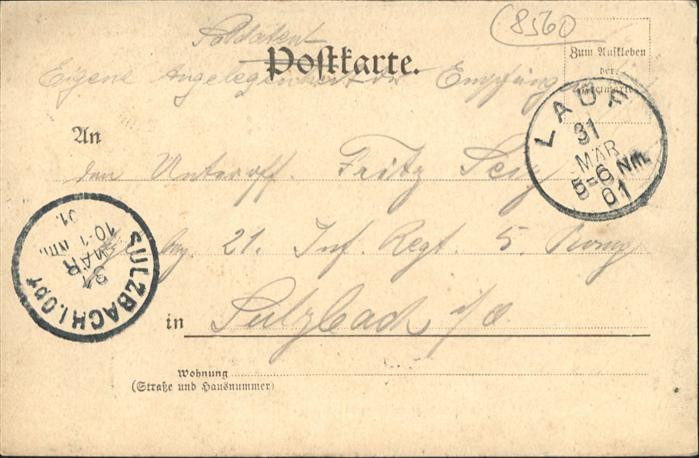 (8560)
Soldaten
Postkarte.
Zum Aufkleben
der
Eigene Angelegenheit des Empfängers
LAUF
31
MÄR
5-6 Nm.
01
An
den Unteroff. Fritz
21. Inf. Regt. 5. Komp
SULZBACH I. OPF
31
MÄR
10-1
01.
in Sulzbach i/O
Wohnung
(Straße und Hausnummer)